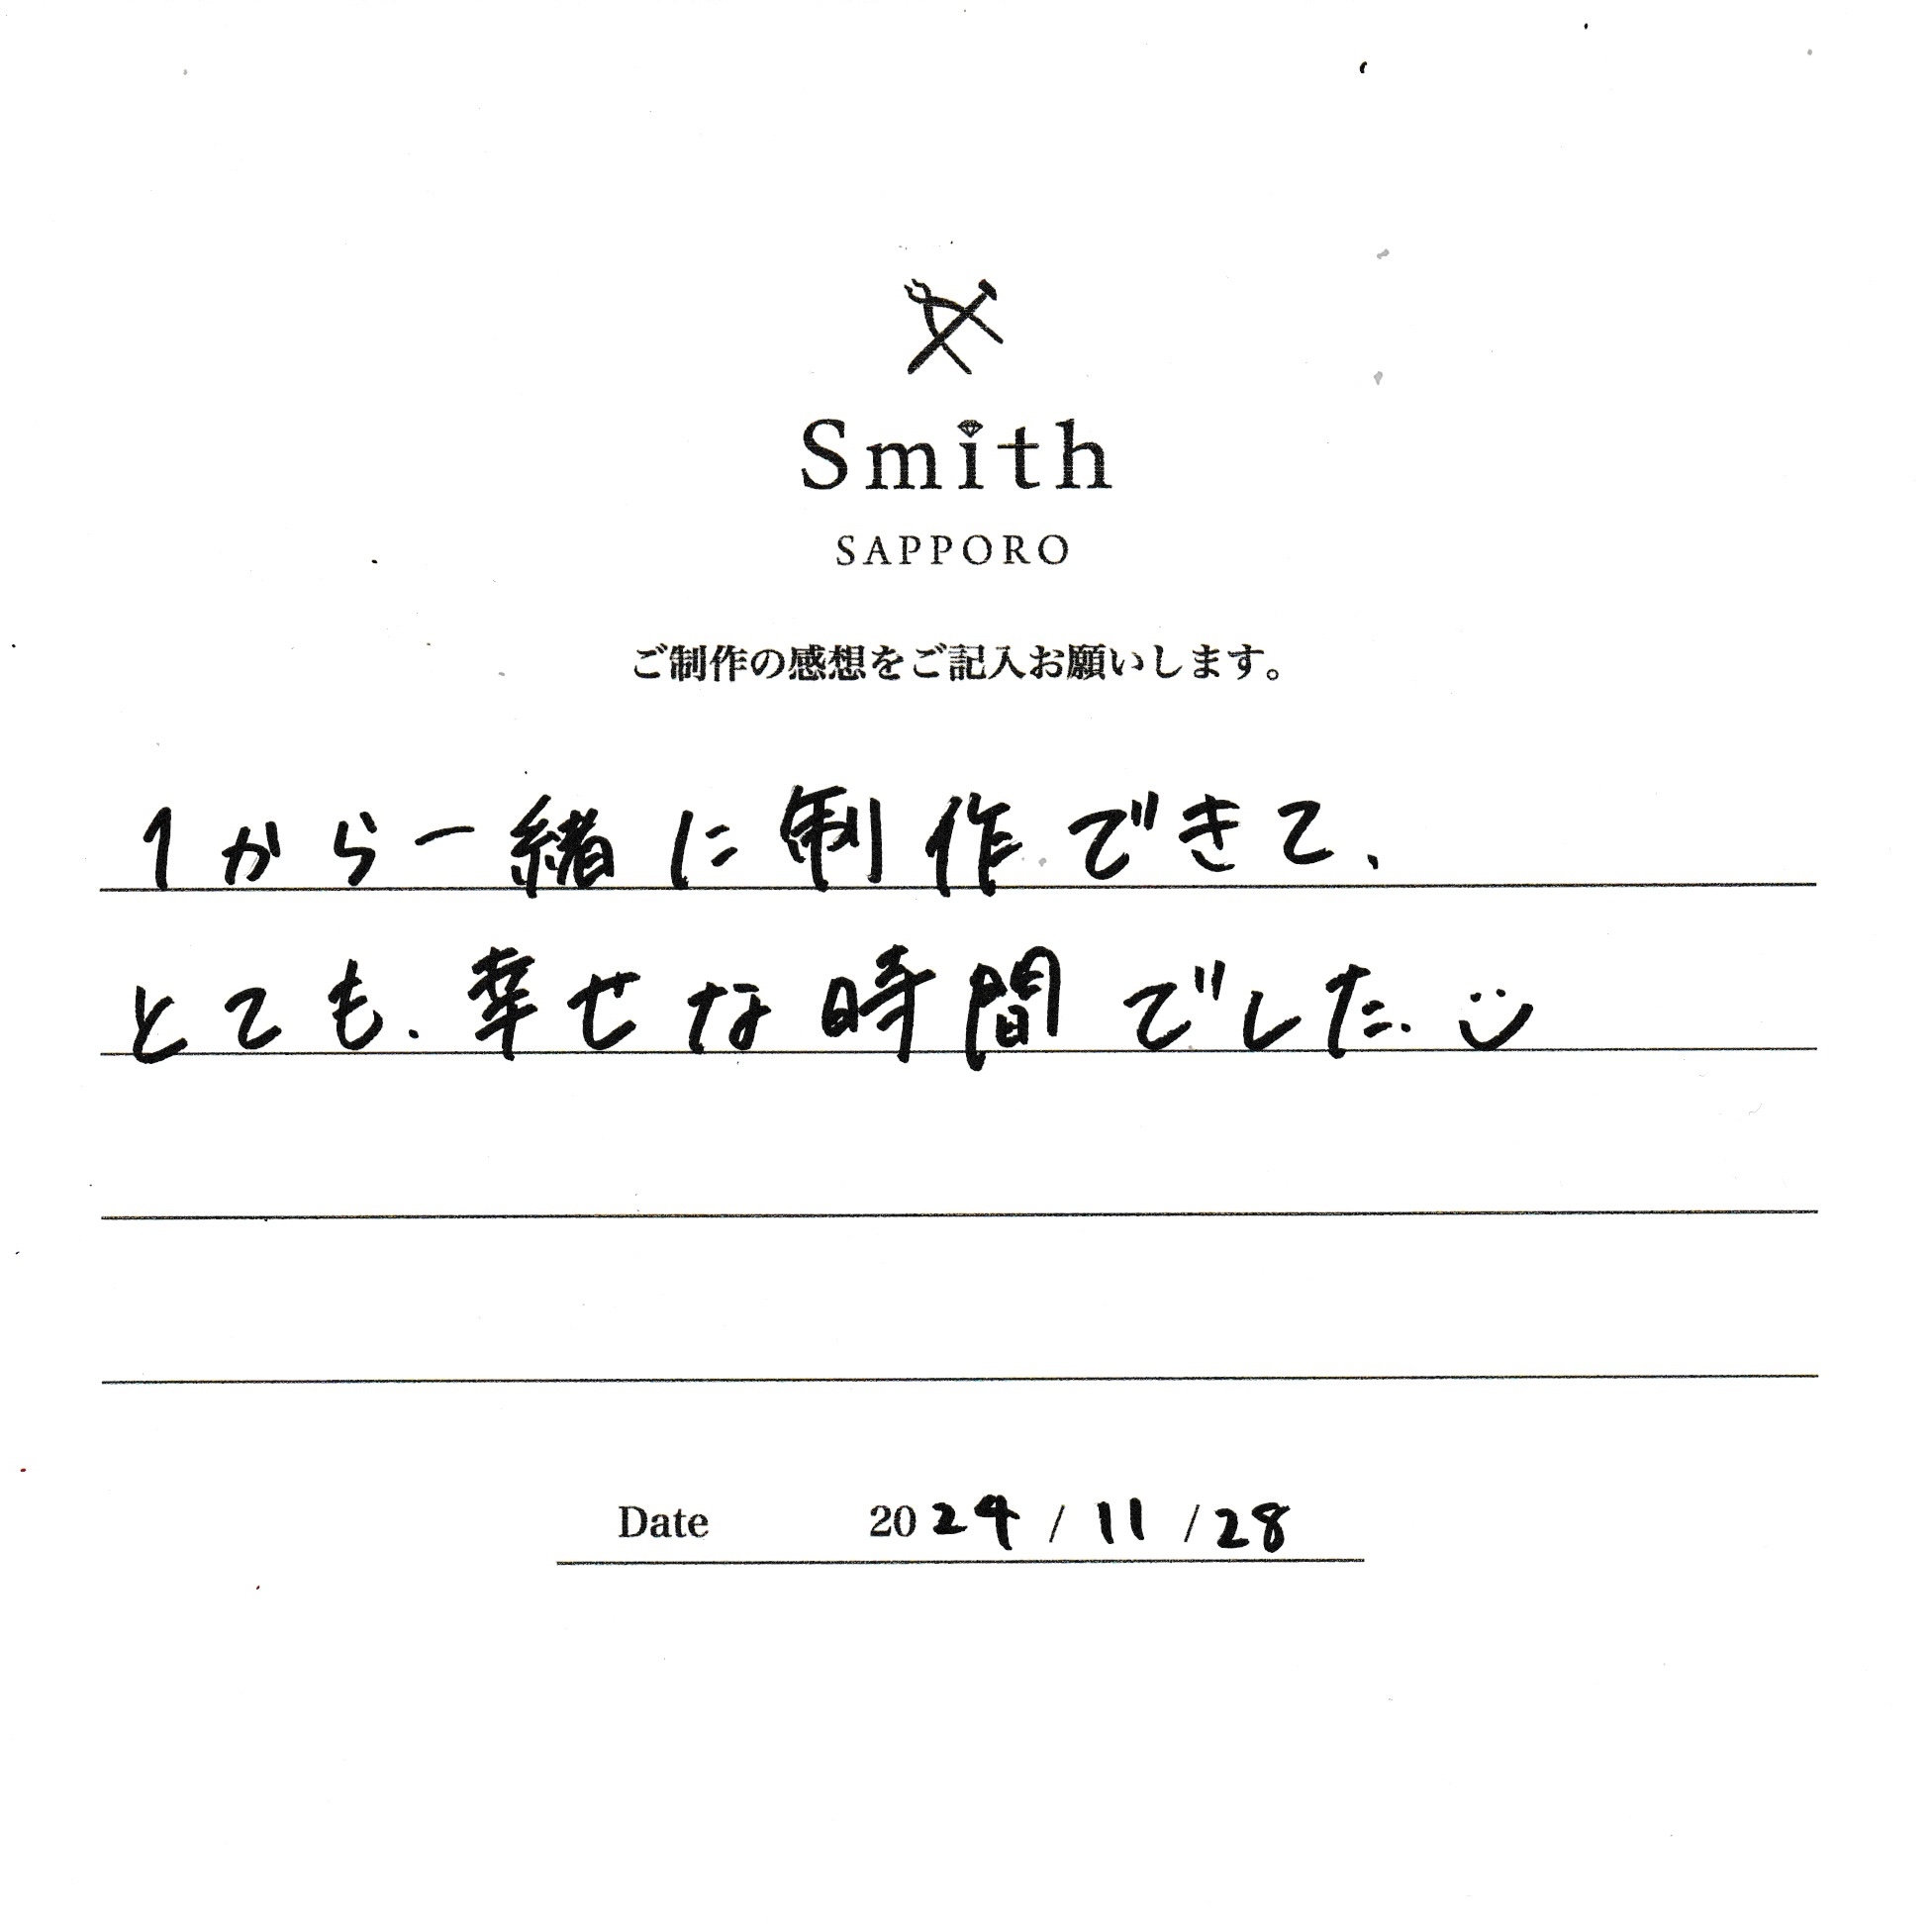 Smith
SAPPORO
ご制作の感想をご記入お願いします。
1から一緒に制作できて、
とても.幸せな時間でした.
Date 2024/11/28